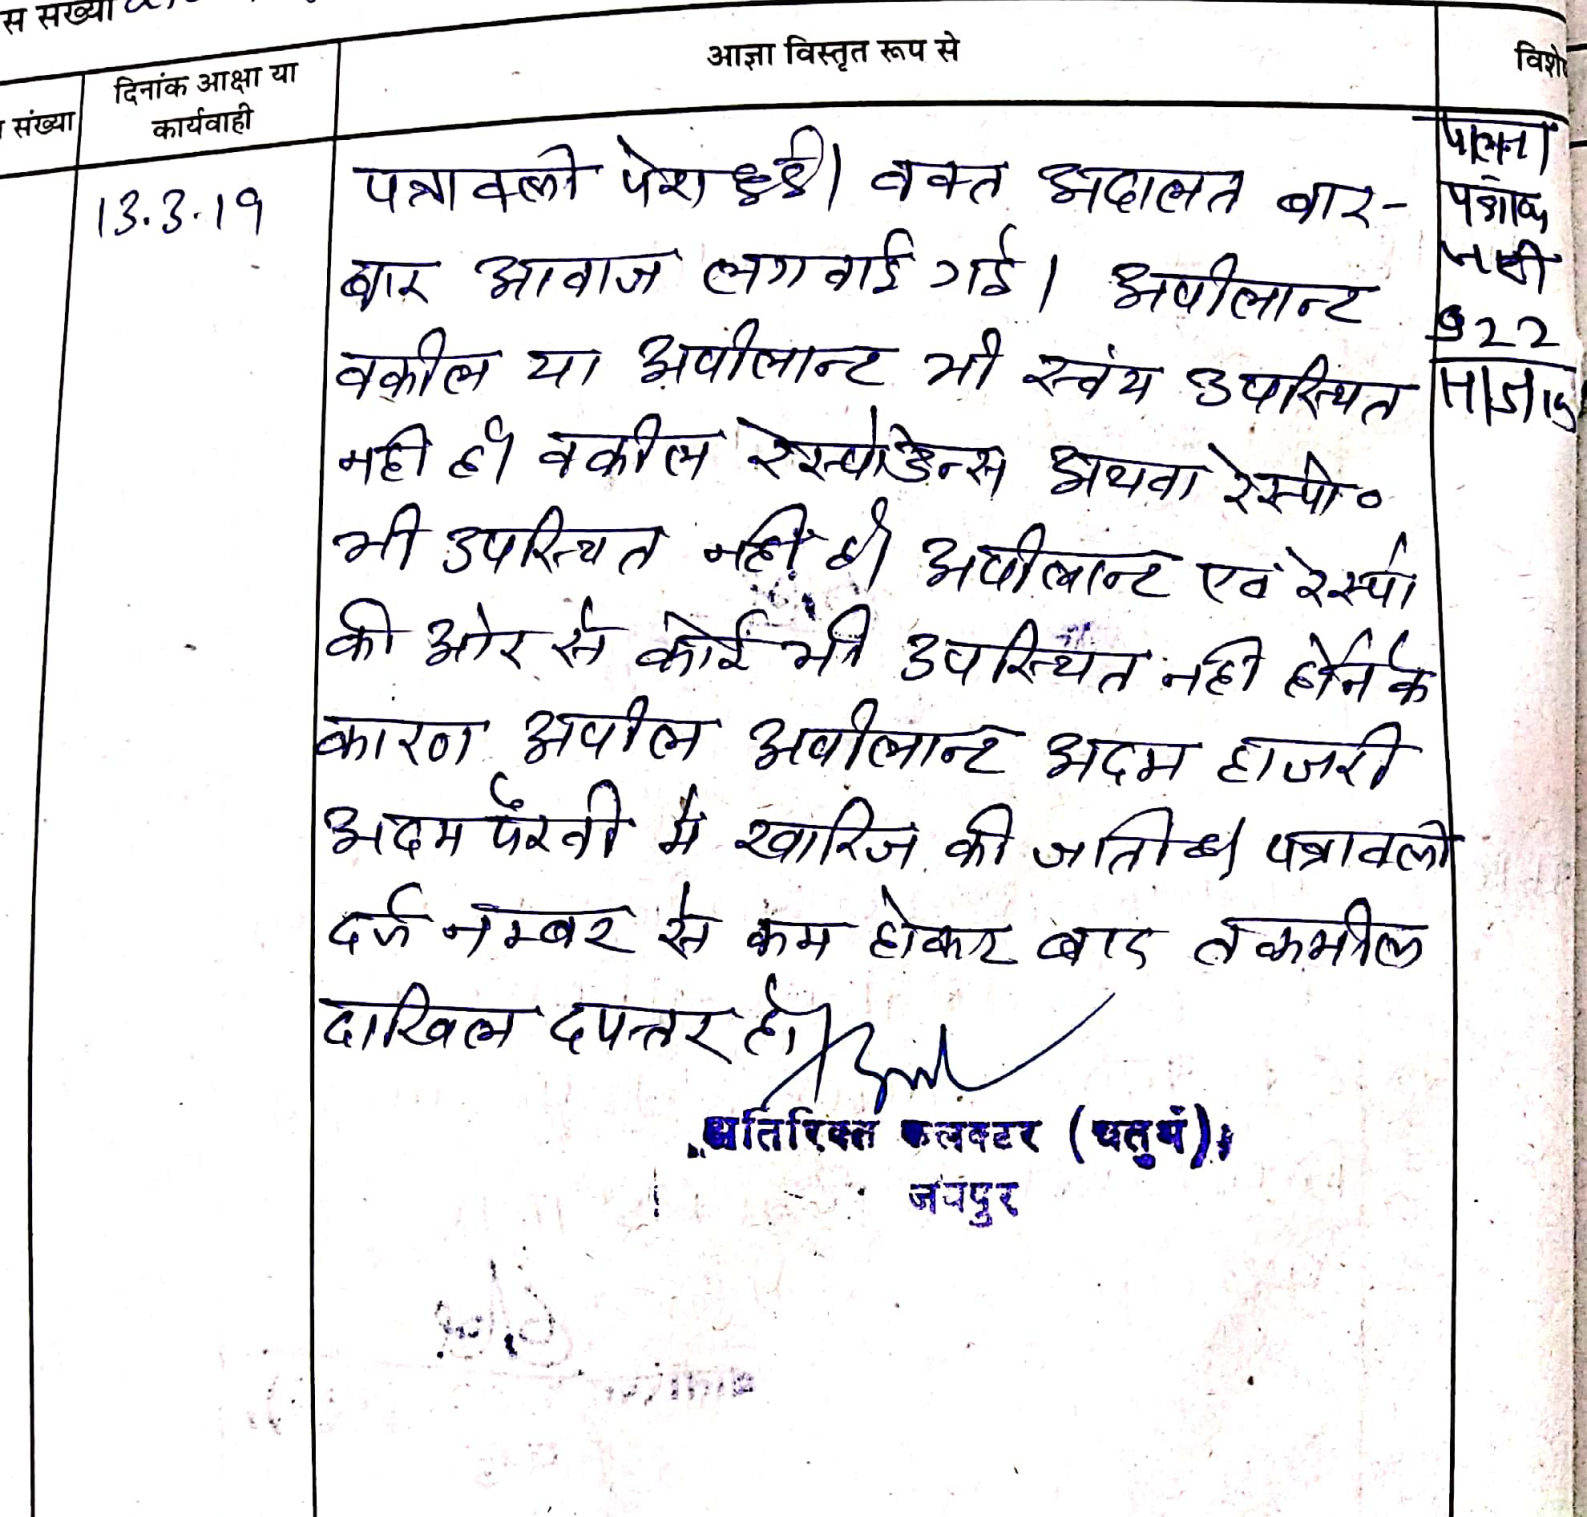 स सख्या
संख्या
दिनांक आक्षा या
कार्यवाही
आज्ञा विस्तृत रूप से
विशे
13.3.19
पत्रावली पेश हुई। वक्त अदालत बार-
बार आवाज लगवाई गई। अपीलान्ट
वकील या अपीलान्ट भी स्वंय उपस्थित
नही है। वकील रेस्पोडेन्स अथवा रेस्पो०
भी उपस्थित नहीं है। अपीलान्ट एवं रेस्पो
की ओर से कोई भी उपस्थित नही होने के
कारण अपील अपीलान्ट अदम हाजरी
अदम पैरवी में खारिज की जाती है। पत्रावली
दर्ज नम्बर से कम होकर बाद तकमील
दाखिल दफ्तर हो।
अतिरिक्त कलक्टर (चतुर्थ)
जयपुर
922